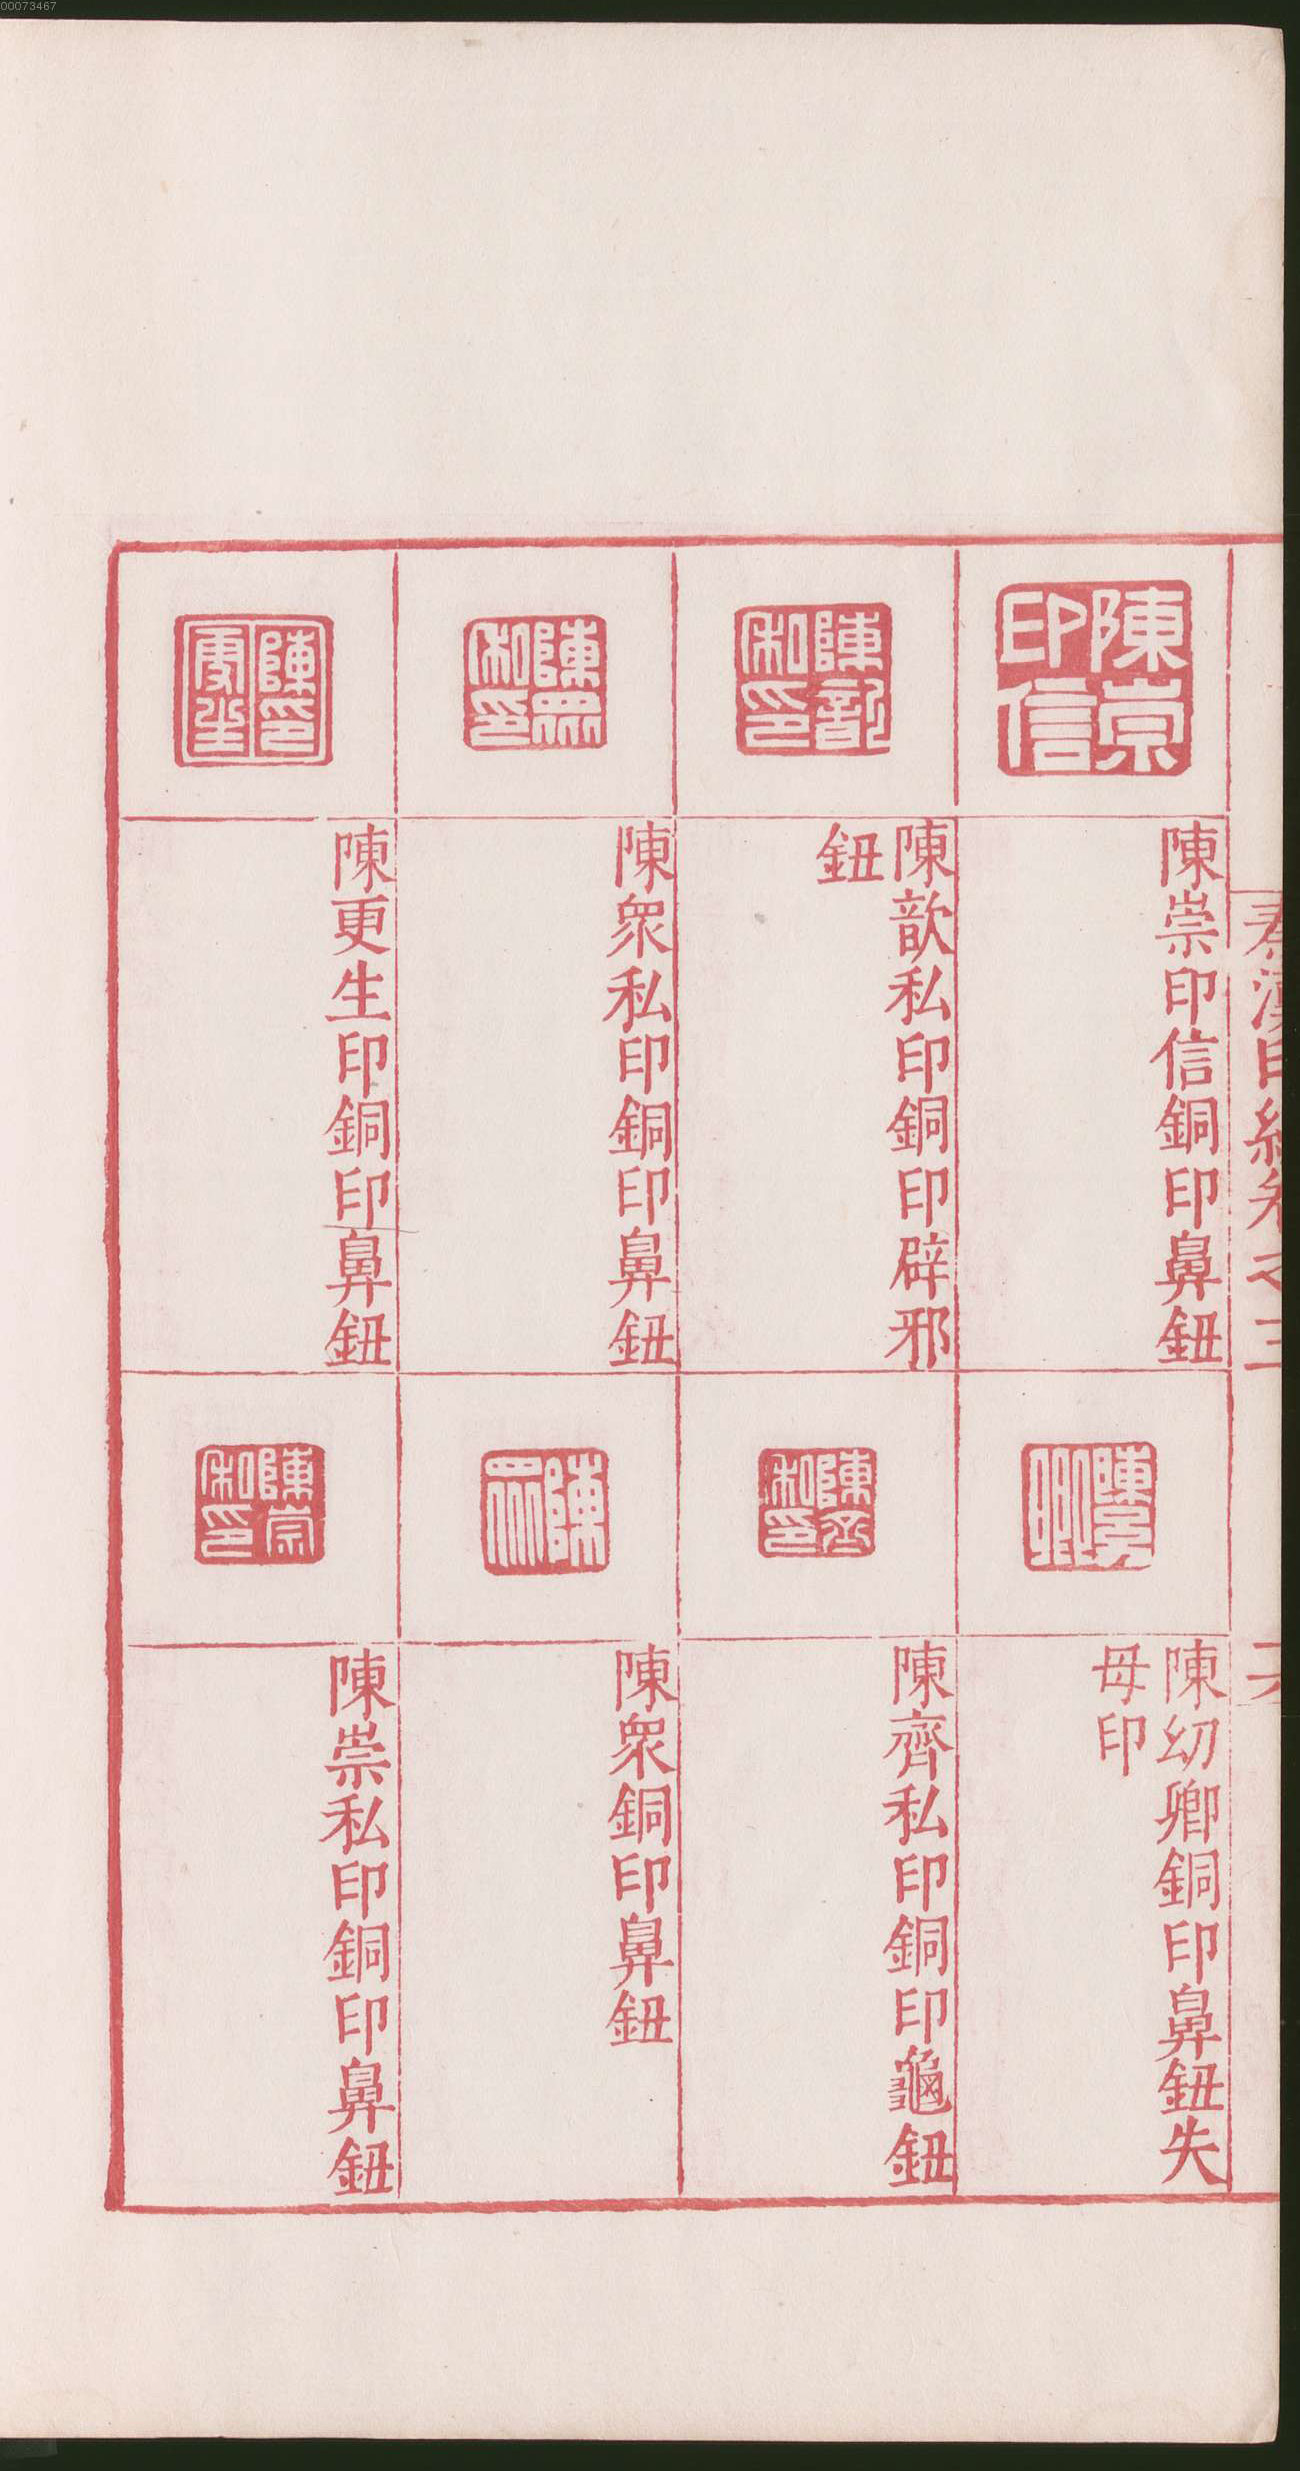 00073467
秦漢印統卷之三
六
陳崇印信
陳崇印信銅印鼻鈕
陳歆私印
陳歆私印銅印辟邪
鈕
陳眾私印
陳眾私印銅印鼻鈕
陳更生印
陳更生印銅印鼻鈕
陳幼卿
陳幼卿銅印鼻鈕失
母印
陳齊私印
陳齊私印銅印龜鈕
陳眾
陳眾銅印鼻鈕
陳崇私印
陳崇私印銅印鼻鈕